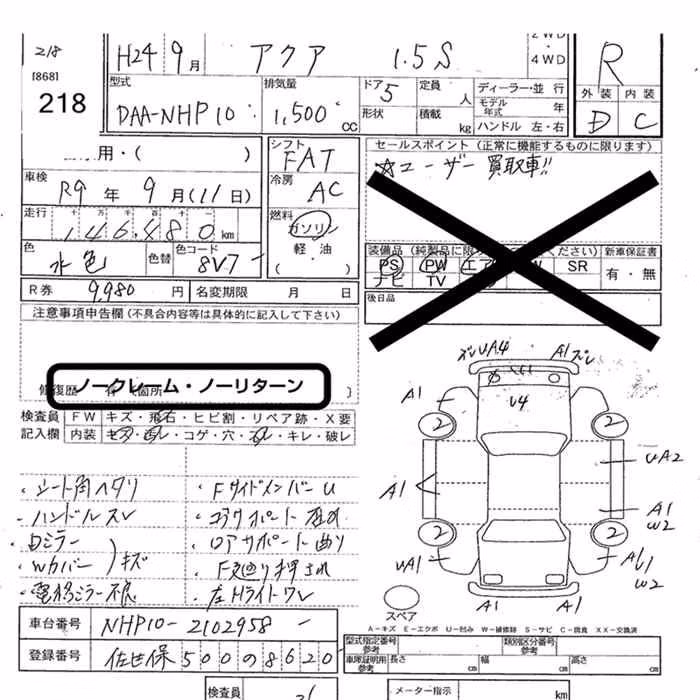 218
[868]
218
H24 9月 アクア 1.5S
2WD・4WD
R
型式 DAA-NHP10
排気量 1,500 CC
ドア 5
形状
定員 人
積載 kg
ディーラー・並 行
モデル年式 年
ハンドル 左・右
外装 内装
D C
用・( )
シフト FAT
冷房 AC
セールスポイント (正常に機能するものに限ります)
☆ユーザー買取車!!
車検 R9 年 9 月 (11 日)
走行 十万千百十一
146,480 km
燃料 ガソリン
軽・油
( )
色 水色 色替 色コード 8V7
装備品 (純製品に限 ください) 新車保証書
PS PW エア W SR 有・無
ナビ TV
R券 9,980 円 名変期限 月 日
後日品
注意事項申告欄 (不具合内容等は具体的に記入して下さい)
ノークレーム・ノーリターン
修復歴 有 (箇所 )
検査員記入欄
FW キズ・飛石・ヒビ割・リペア跡・X要
内装 コゲ・穴・キレ・破レ
・シート角ヘタリ
・ハンドルスレ
・Dミラー
・Wカバー キズ
・電格ミラー不良
・FサイドメンバーU
・コアサポート歪み
・ロアサポート曲り
・F廻り押され
・左Hライトワレ
ズレ UA4 A1 ズレ
A1 U4 A1
2 2
UA2
A1 A1
W2
2 2
UA1
W2
A1 A1
スペア
A-キズ E-エクボ U-凹み W-補修跡 S-サビ C-腐食 XX-交換済
車台番号 NHP10-2102958
登録番号 佐世保500の8620
型式指定番号 参考
類別区分番号 参考
車庫証明用 参考 長さ cm 幅 cm 高さ cm
検査員
メーター指示 km